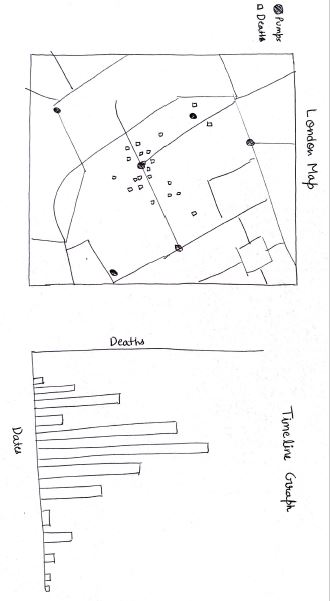 London Map
Pumps
Deaths
Timeline Graph
Deaths
Dates